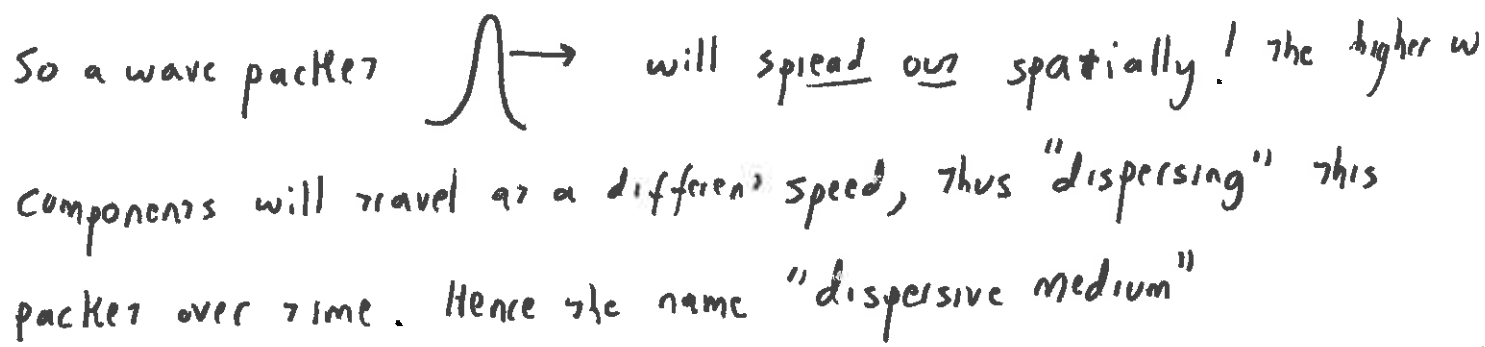 So a wave packet will spread out spatially! The higher ω
components will travel at a different speed, thus "dispersing" this
packet over time. Hence the name "dispersive medium"